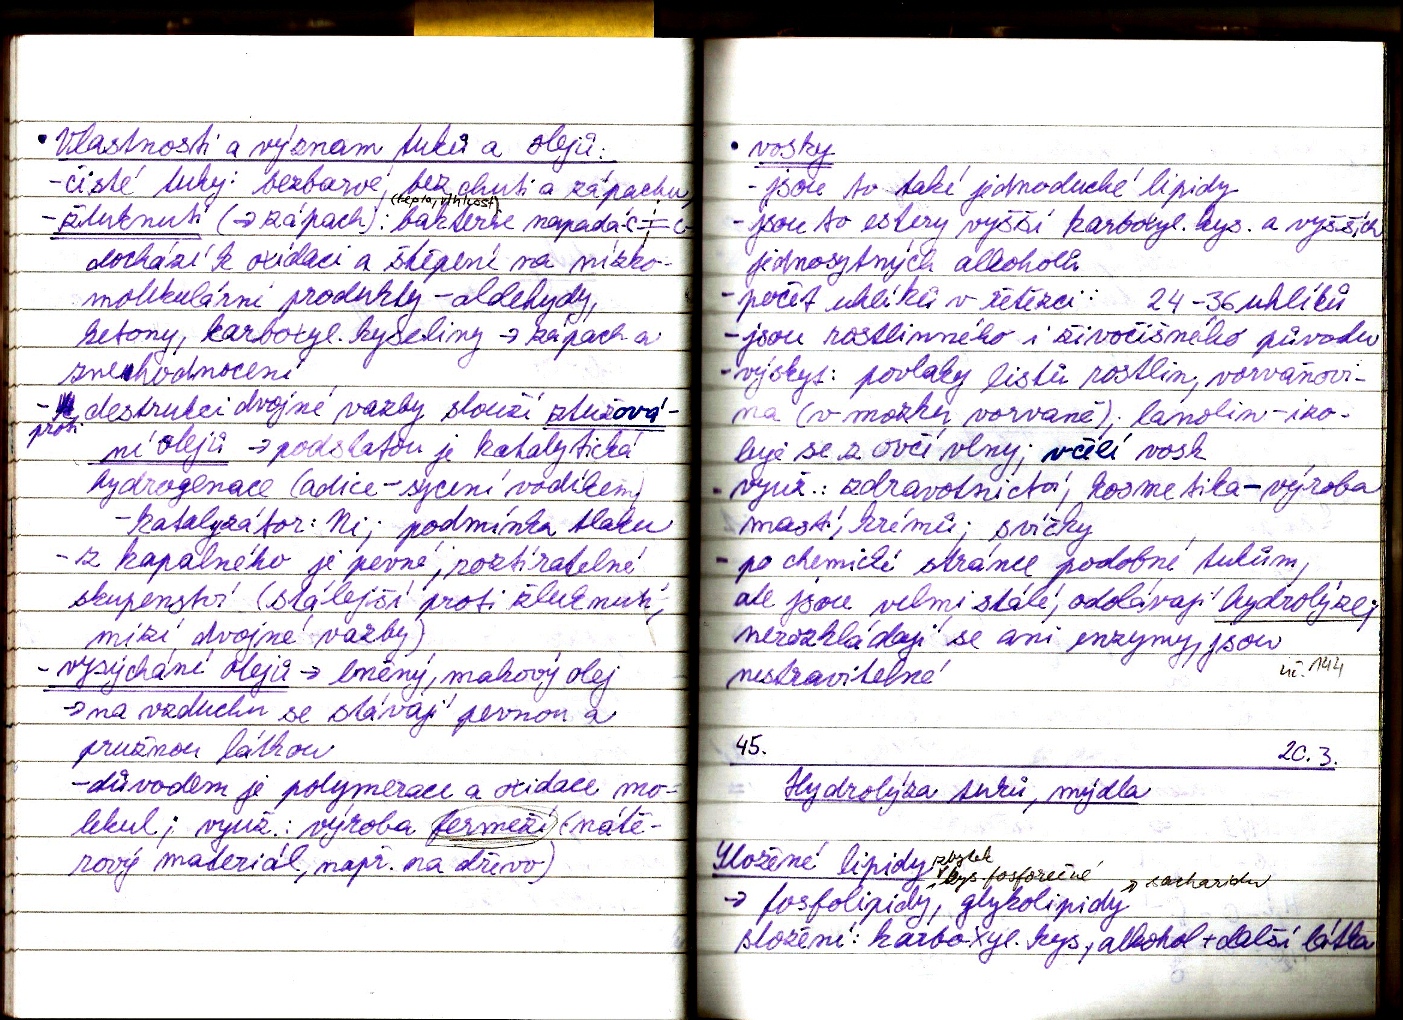 • Vlastnosti a význam tuků a olejů:
- čisté tuky: bezbarvé, bez chuti a zápachu,
(teplo, vlhkost)
- žluknutí (→ zápach): bakterie napadá C=C
dochází k oxidaci a štěpení na nízko-
molekulární produkty - aldehydy,
ketony, karboxyl. kyseliny → zápach a
znehodnocení
- proti destrukci dvojné vazby slouží ztužová-
ní olejů → podstatou je katalytická
hydrogenace (adice - sycení vodíkem)
- katalyzátor: Ni; podmínka tlaku
- z kapalného je pevné, roztíratelné
skupenství (stálejší proti žluknutí,
mizí dvojné vazby)
- vysýchání olejů → lněný, makový olej
→ na vzduchu se stávají pevnou a
pružnou látkou
- důvodem je polymerace a oxidace mo-
lekul; využ.: výroba fermeží (nátě-
rový materiál, např. na dřevo)
• vosky
- jsou to také jednoduché lipidy
- jsou to estery vyšší karboxyl. kys. a vyšších
jednosytných alkoholů
- počet uhlíků v řetězci: 24-36 uhlíků
- jsou rostlinného i živočišného původu
- výskyt: povlaky listů rostlin, vorvaňovi-
na (v mozku vorvaně); lanolin - izo-
luje se z ovčí vlny; včelí vosk
- využ.: zdravotnictví, kosmetika - výroba
mastí, krémů; svíčky
- po chemické stránce podobné tukům,
ale jsou velmi stálé, odolávají hydrolýze;
nerozkládají se ani enzymy, jsou
nestravitelné
uč. 144
45. 20. 3.
Hydrolýza tuků, mýdla
Složené lipidy
zbytek
kys. fosforečné → sacharidu
→ fosfolipidy, glykolipidy
složení: karboxyl. kys, alkohol + další látka